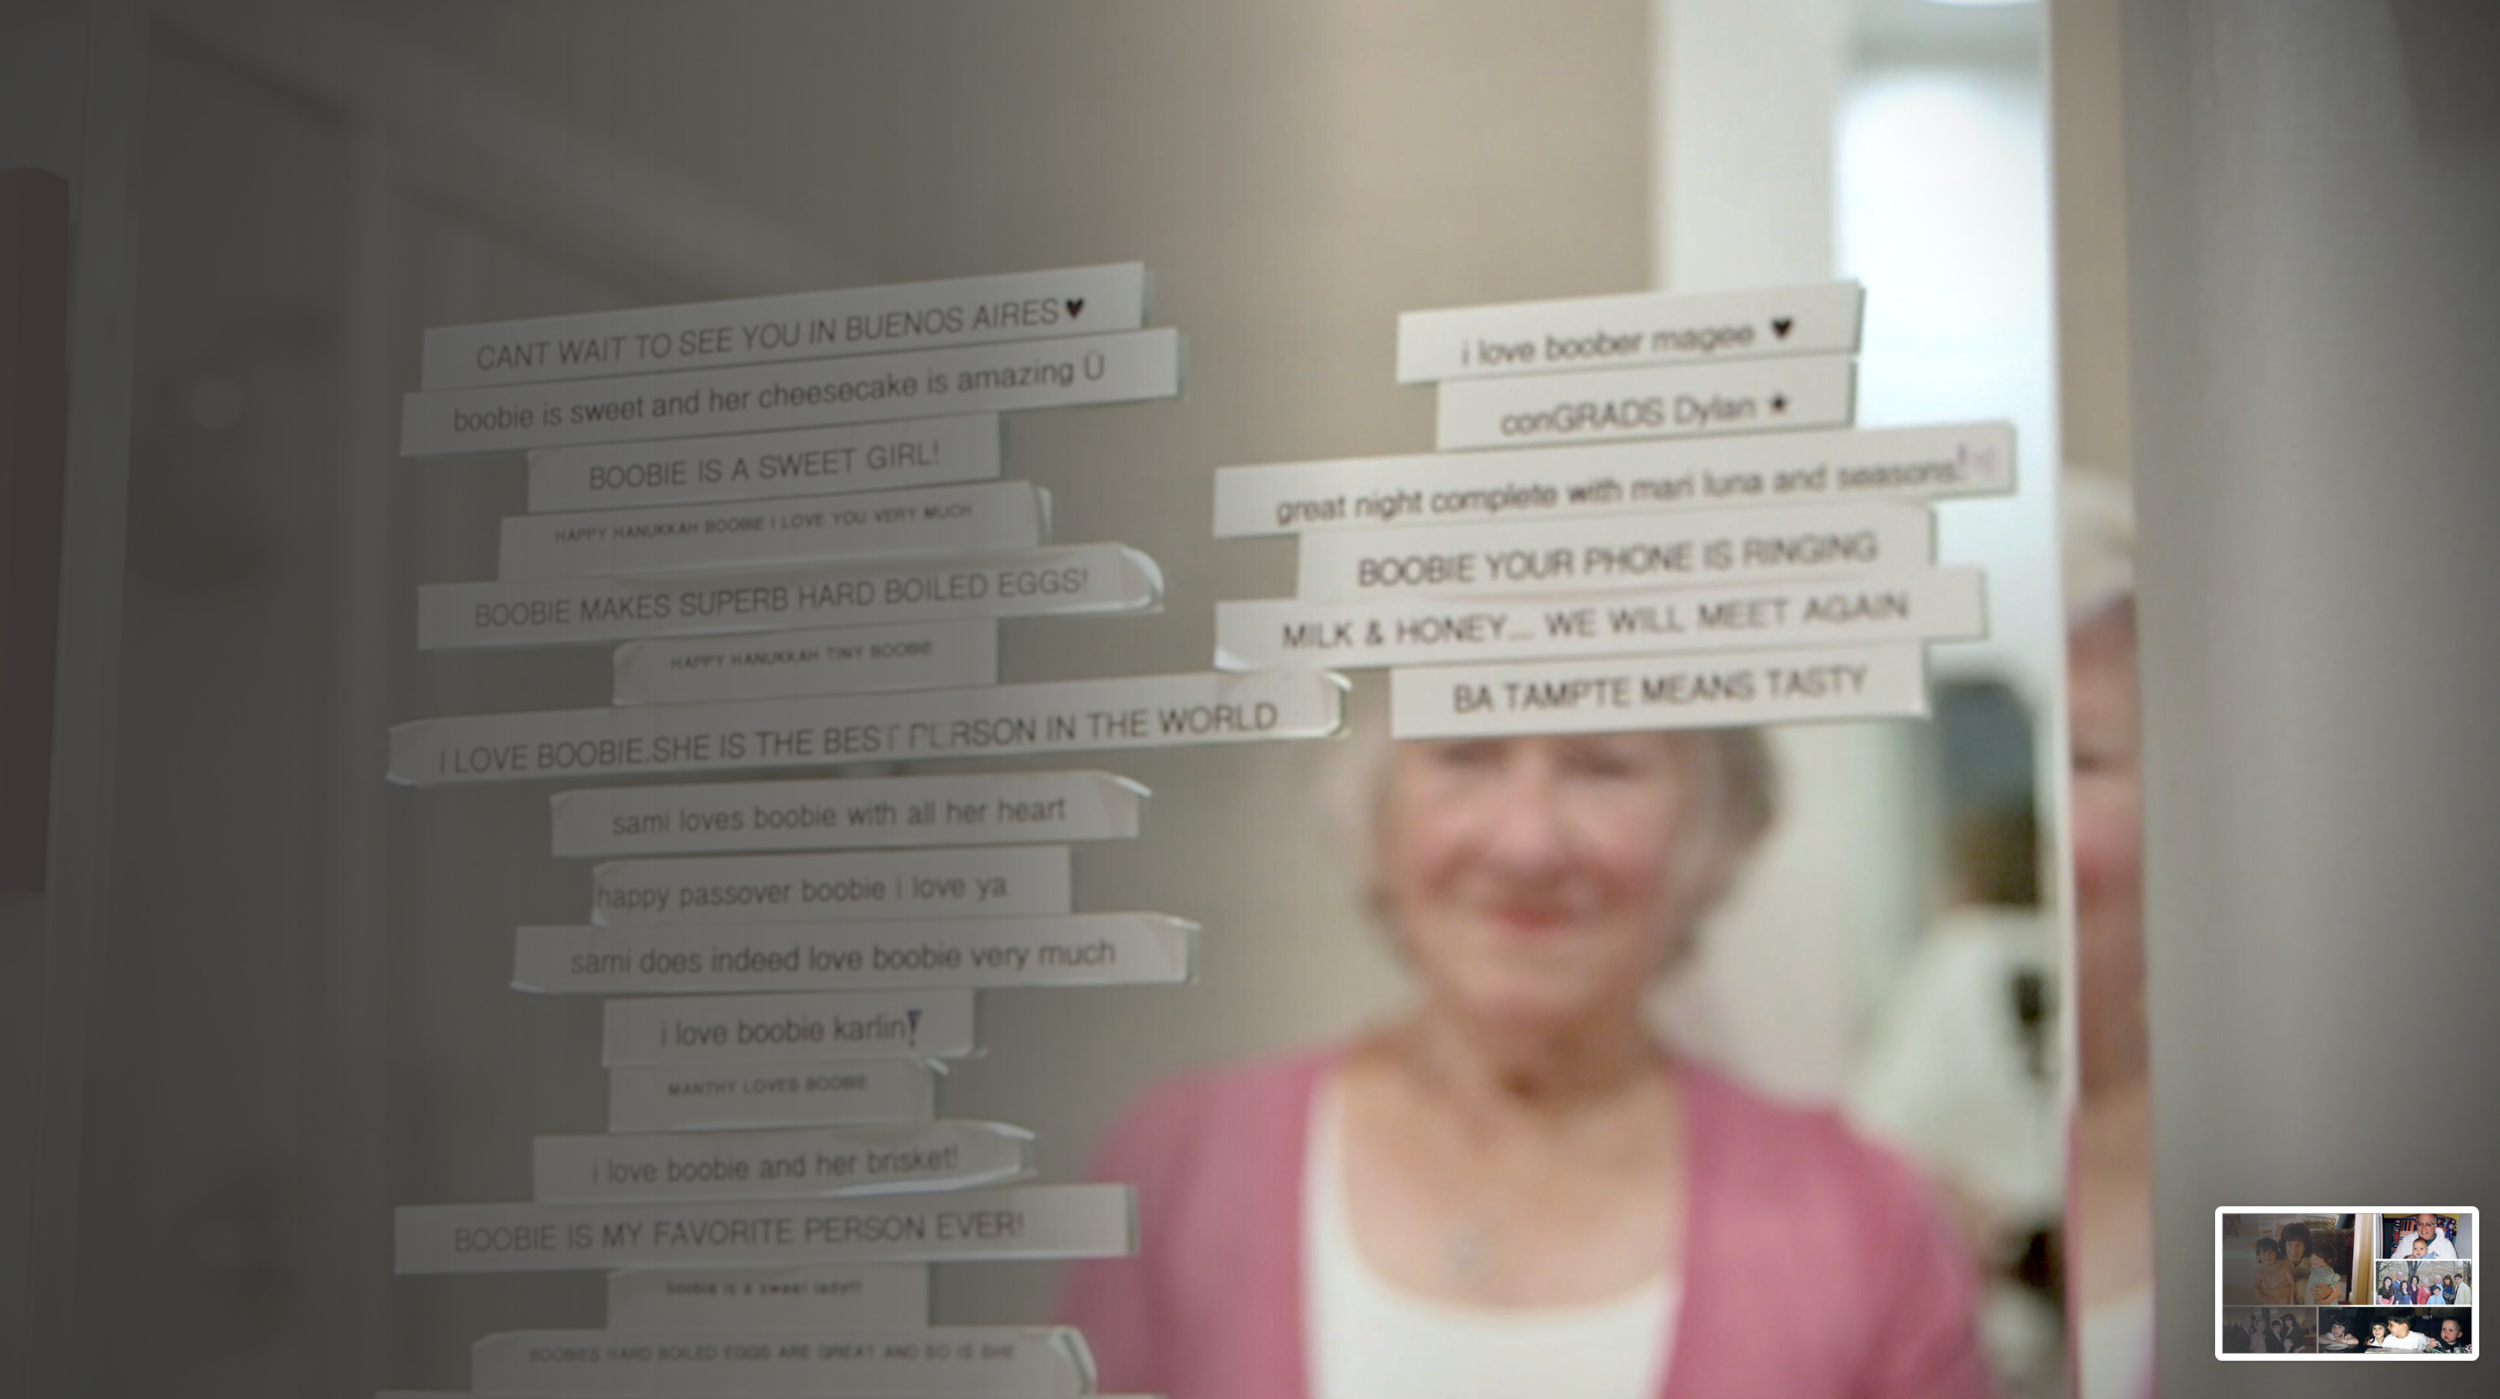 CANT WAIT TO SEE YOU IN BUENOS AIRES♥
boobie is sweet and her cheesecake is amazing Ü
BOOBIE IS A SWEET GIRL!
HAPPY HANUKKAH BOOBIE I LOVE YOU VERY MUCH
BOOBIE MAKES SUPERB HARD BOILED EGGS!
HAPPY HANUKKAH TINY BOOBIE
I LOVE BOOBIE.SHE IS THE BEST PERSON IN THE WORLD
sami loves boobie with all her heart
happy passover boobie i love ya
sami does indeed love boobie very much
i love boobie karlin!
MANTHY LOVES BOOBIE
i love boobie and her brisket!
BOOBIE IS MY FAVORITE PERSON EVER!
boobie is a sweet lady!!!
BOOBIES HARD BOILED EGGS ARE GREAT AND SO IS SHE
i love boober magee ♥
conGRADS Dylan ★
great night complete with mari luna and seasons!
BOOBIE YOUR PHONE IS RINGING
MILK & HONEY... WE WILL MEET AGAIN
BA TAMPTE MEANS TASTY